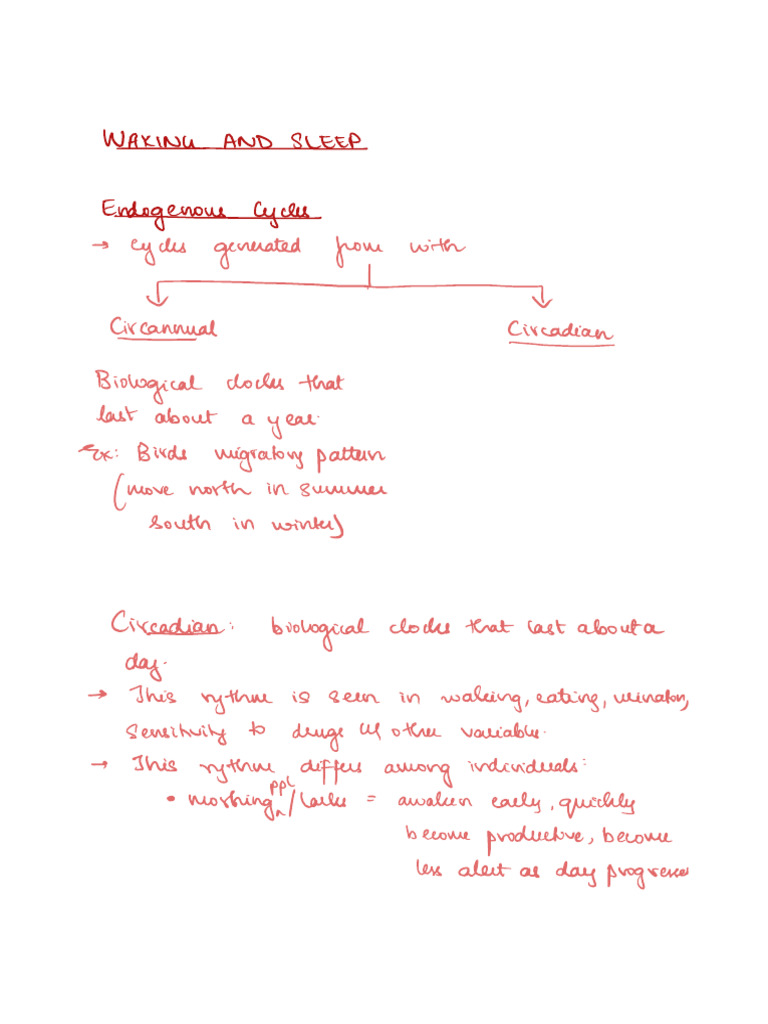 WAKING AND SLEEP
Endogenous Cycles
→ cycles generated from with
Circannual Circadian
Biological clocks that
last about a year.
Ex: Birds migratory pattern
(move north in summer
south in winter)
Circadian: biological clocks that last about a
day.
→ This rythm is seen in waking, eating, urination,
sensitivity to drugs & other variables.
→ This rythm differs among individuals:
• morning ppl / larks = awaken early, quickly
become productive, become
less alert as day progresses